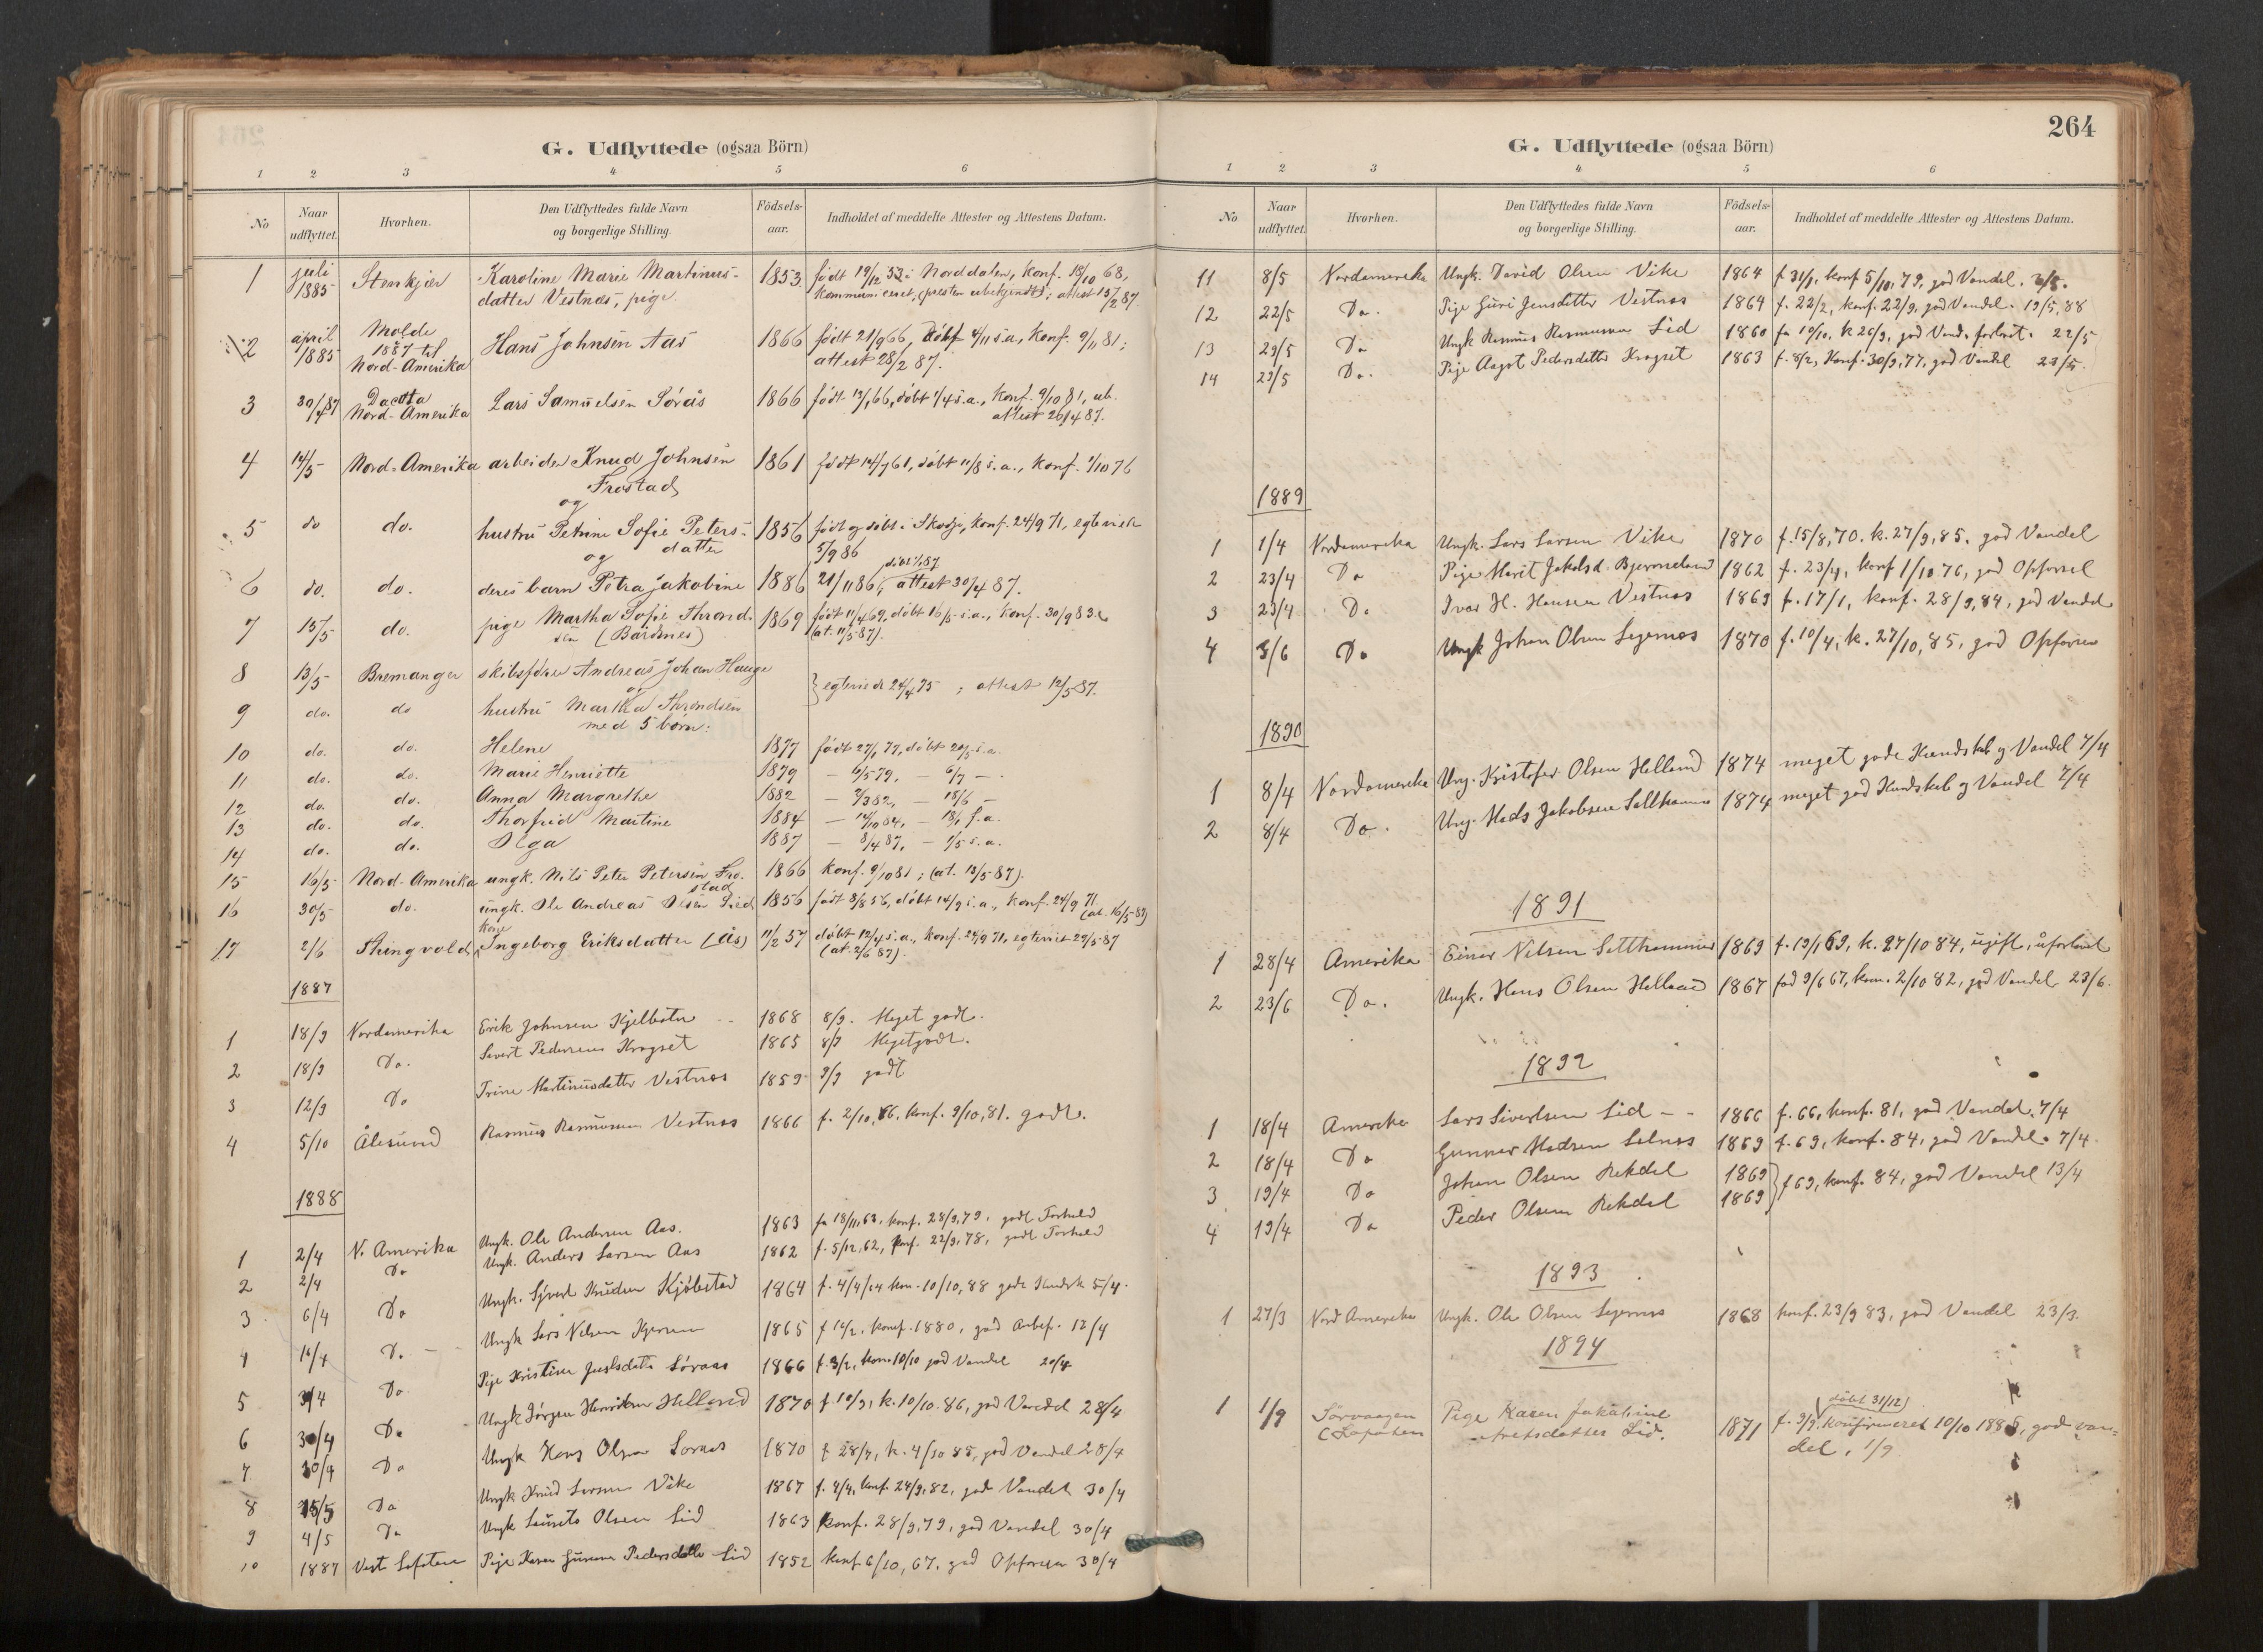 G. Udflyttede (ogsaa Börn)
1 2 3 4 5 6
No Naar udflyttet. Hvorhen. Den Udflyttedes fulde Navn og borgerlige Stilling. Födsels-aar. Indholdet af meddelte Attester og Attestens Datum.
1 juli 1885 Stenkjær Karoline Marie Martinus- 1853 født 19/12 53 i Norddalen, Konf. 18/10 68,
datter Vestnæs, pige kommuniceret, (presten ubekjendt); attest 15/2 87.
2 april 1885 Molde 1887 til Nord-Amerika Hans Johnsen Aas 1866 født 21/9 66, døbt 4/11 s.a., Konf. 9/11 81;
attest 28/2 87.
3 30/4 87 Dacota Nord-Amerika Lars Samuelsen Sørås 1866 født 13/1 66, døbt 1/4 s.a., Konf. 9/10 81, ub.
attest 26/4 87.
4 14/5 Nord-Amerika arbeider Knud Johnsen 1861 født 14/7 61, døbt 11/8 s.a., Konf. 1/10 76
Frostad
og
5 do do. hustru Petrine Sofie Peters- 1856 født og døbt i Skodje, Konf. 24/9 71, egteviet
datter 5/9 86
og døbt 1/1 87
6 do. do. deres barn Petra Jakobine 1886 21/11 86, attest 30/4 87.
7 15/5 do. pige Martha Sofie Thrond- 1869 født 11/4 69, døbt 16/5 s.a., Konf. 30/9 83.
sen (Bardsnes) (at. 11/5 87).
8 13/5 Bremanger skibsfører Andreas Johan Hauge
og egteviet 24/4 75; attest 12/5 87.
9 do. do hustru Martha Throndsen
med 5 børn:
10 do. do. Helene 1877 født 27/1 77, døbt 20/5 s.a.
11 do. do. Marie Henriette 1879 — 6/5 79, — 6/7 —.
12 do. do. Anna Margrethe 1882 — 3/3 82, — 18/6 —
13 do. do. Thorfrid Martine 1884 — 14/10 84, — 18/1 f.a.
14 do. do. Olga 1887 — 8/4 87, — 1/5 s.a.
15 16/5 Nord-Amerika ungk. Nils Peter Petersen Fro- 1866 Konf. 9/10 81; (at. 13/5 87).
stad
16 30/5 do. ungk. Ole Andreas Olsen Lied 1856 født 8/8 56, døbt 14/9 s.a., Konf. 24/9 71
(at. 16/5 87)
kone
17 2/6 Thingvold Ingeborg Eriksdatter (Ås) 11/2 57 døbt 12/4 s.a., Konf. 24/9 71, egteviet 29/5 87
(at. 2/6 87).
1887
1 18/9 Nordamerika Erik Johnsen Kjelbotn 1868 8/9. Meget godt.
2 18/9 Do. Sivert Pedersen Kragset 1865 8/9 Megetgodt.
3 12/9 Do Trine Martinusdatter Vestnæs 1859 9/9 godt
4 5/10 Ålesund Rasmus Rasmussen Vestnæs 1866 f. 2/10, 66. Konf. 9/10, 81. godt.
1888
1 2/4 N. Amerika Ungk. Ole Andersen Aas. 1863 fø 18/11, 63, konf. 28/9, 79, godt Forhold
2 2/4 Do Ungk. Anders Larsen Aas 1862 f. 5/12, 62, konf. 22/9, 78, godt Forhold
3 6/4 Do Ungk. Sjvert Knudsen Kjøbstad 1864 f. 4/4/64 kon. 10/10, 88 gode Kundsk 5/4.
4 16/4 D. Ungk Lars Nelsen 1865 konf. 1880, god Anbef. 12/4
5 Do Pige Kristine Søraas 1866 f. 3/2, kon. 10/10 god Vandel 20/4
6 30/4 Do Ungk Jørgen Henriksen Helland 1870 f 10/3, k. 10/10. 86, god Vandel 28/4
7 30/4 Do Ungk Hans Olsen Soraas 1870 f 28/7, k. 4/10 85, god Vandel 28/4
8 15/5 Do Ungk Knud Larsen Vike 1867 f. 4/4, konf. 24/9, 82, god Vandel 30/4
9 4/5 Do Ungk Laurits Olsen Lid 1863 konf. 28/9, 79, god Vandel 30/4
10 1887 Vest Lofoten Pige Karen Pedersdatter Lid 1852 konf 6/10, 67. god Opførsen 30/4
264
G. Udflyttede (ogsaa Börn)
1 2 3 4 5 6
No Naar udflyttet. Hvorhen. Den Udflyttedes fulde Navn og borgerlige Stilling. Födsels-aar. Indholdet af meddelte Attester og Attestens Datum.
11 8/5 Nordamerika Ungk. David Olsen Vike 1864 f 31/1, konf 5/10, 79, god Vandel. 3/5.
12 22/5 Do. Pige Guri Jensdatter Vestnæs 1864 f. 22/2, konf. 22/9, god Vandel. 19/5, 88
13 29/5 Do Ungk Rasmus Rasmussen Lid 1860 fø 19/10, k 26/9, god Vand. forlovt. 22/5
14 29/5 Do. Pige Aagot Pedersdatter Kragset 1863 f. 8/2, Konf. 30/9, 77, god Vandel 23/5.
1889
1 1/4 Nordamerika Ungk. Lars Larsen Vike 1870 f. 15/8, 70. k. 27/9, 85. god Vandel
2 23/4 Do Pige Marit Jakobsd. Bjermeland 1862 f. 23/4, konf 1/10 76, god Opførsel
3 23/4 Do Ivar H. Hansen Vestnæs 1869 f. 17/1, konf. 28/9, 84, god Vandel
4 3/6 Do Ungk Johan Olsen Segernes 1870 f. 10/4, k. 27/10, 85, god Opførsel
1890
1 8/4 Nordamerika Ung. Kristofer Olsen Helland 1874 meget gode Kundskab og Vandel 7/4
2 8/4 Do. Ung. Mads Jakobsen Salthammer 1874 meget god Kundskab og Vandel 7/4
1891
1 28/4 Amerika Einar Nilsen Salthammer 1869 f. 19/1 69, k. 27/10 84, ugift, uforlovet
2 23/6 Do. Ungk. Hans Olsen Helland 1867 fød 9/6 67, kon. 2/10 82, god Vandel 23/6.
1892
1 18/4 Amerika Lars Sivertsen Lid - - 1866 f. 66, konf. 81, god Vandel. 7/4
2 18/4 Do Gunnar Madsen Selnæs 1869 f. 69, konf. 84, god Vandel. 7/4.
3 19/4 Do Johan Olsen Rekdal 1869 f 69, konf. 84, god Vandel 13/4
4 19/4 Do Peder Olsen Rekdal 1869
1893
1 27/3 Nord Amerika Ungk. Ole Olsen Segernes 1868 konf. 23/9 83, god Vandel 23/3.
1894
1 1/9 Sørvaagen Pige Karen Jakobine 1871 f. 9/9. (døbt 31/12) konfirmeret 10/10 1886, god van-
(Lofoten Lid. del, 1/9